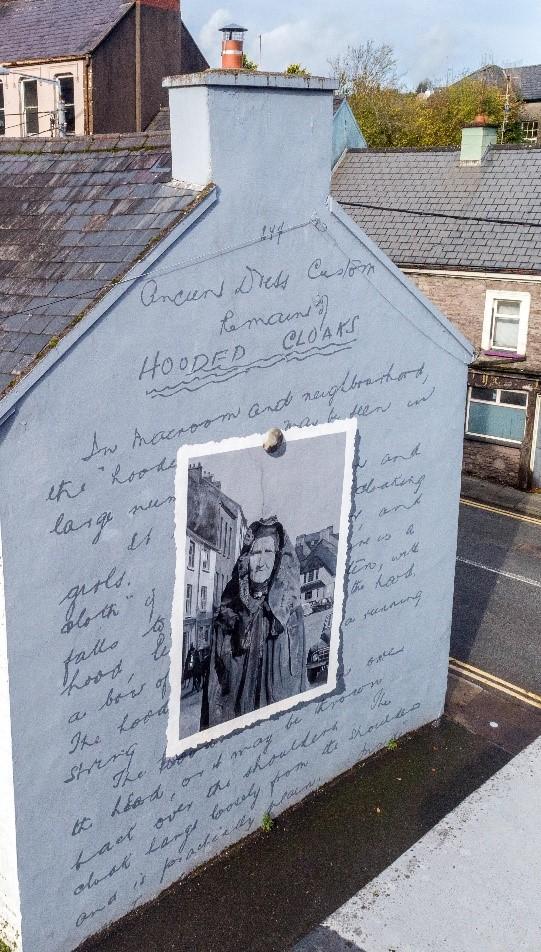 244
Ancient Dress Custom
Remains of
HOODED CLOAKS
In Macroom and neighbourhood,
the "hooded may be seen in
large num and
It cloaking
girls. and
cloth" of is a
falls to will
hood, the hood,
a bow of a running
The hood
string one
The may be thrown
the head, or it
back over the shoulders. The
cloak hangs loosely from the shoulders
and is practically plain.